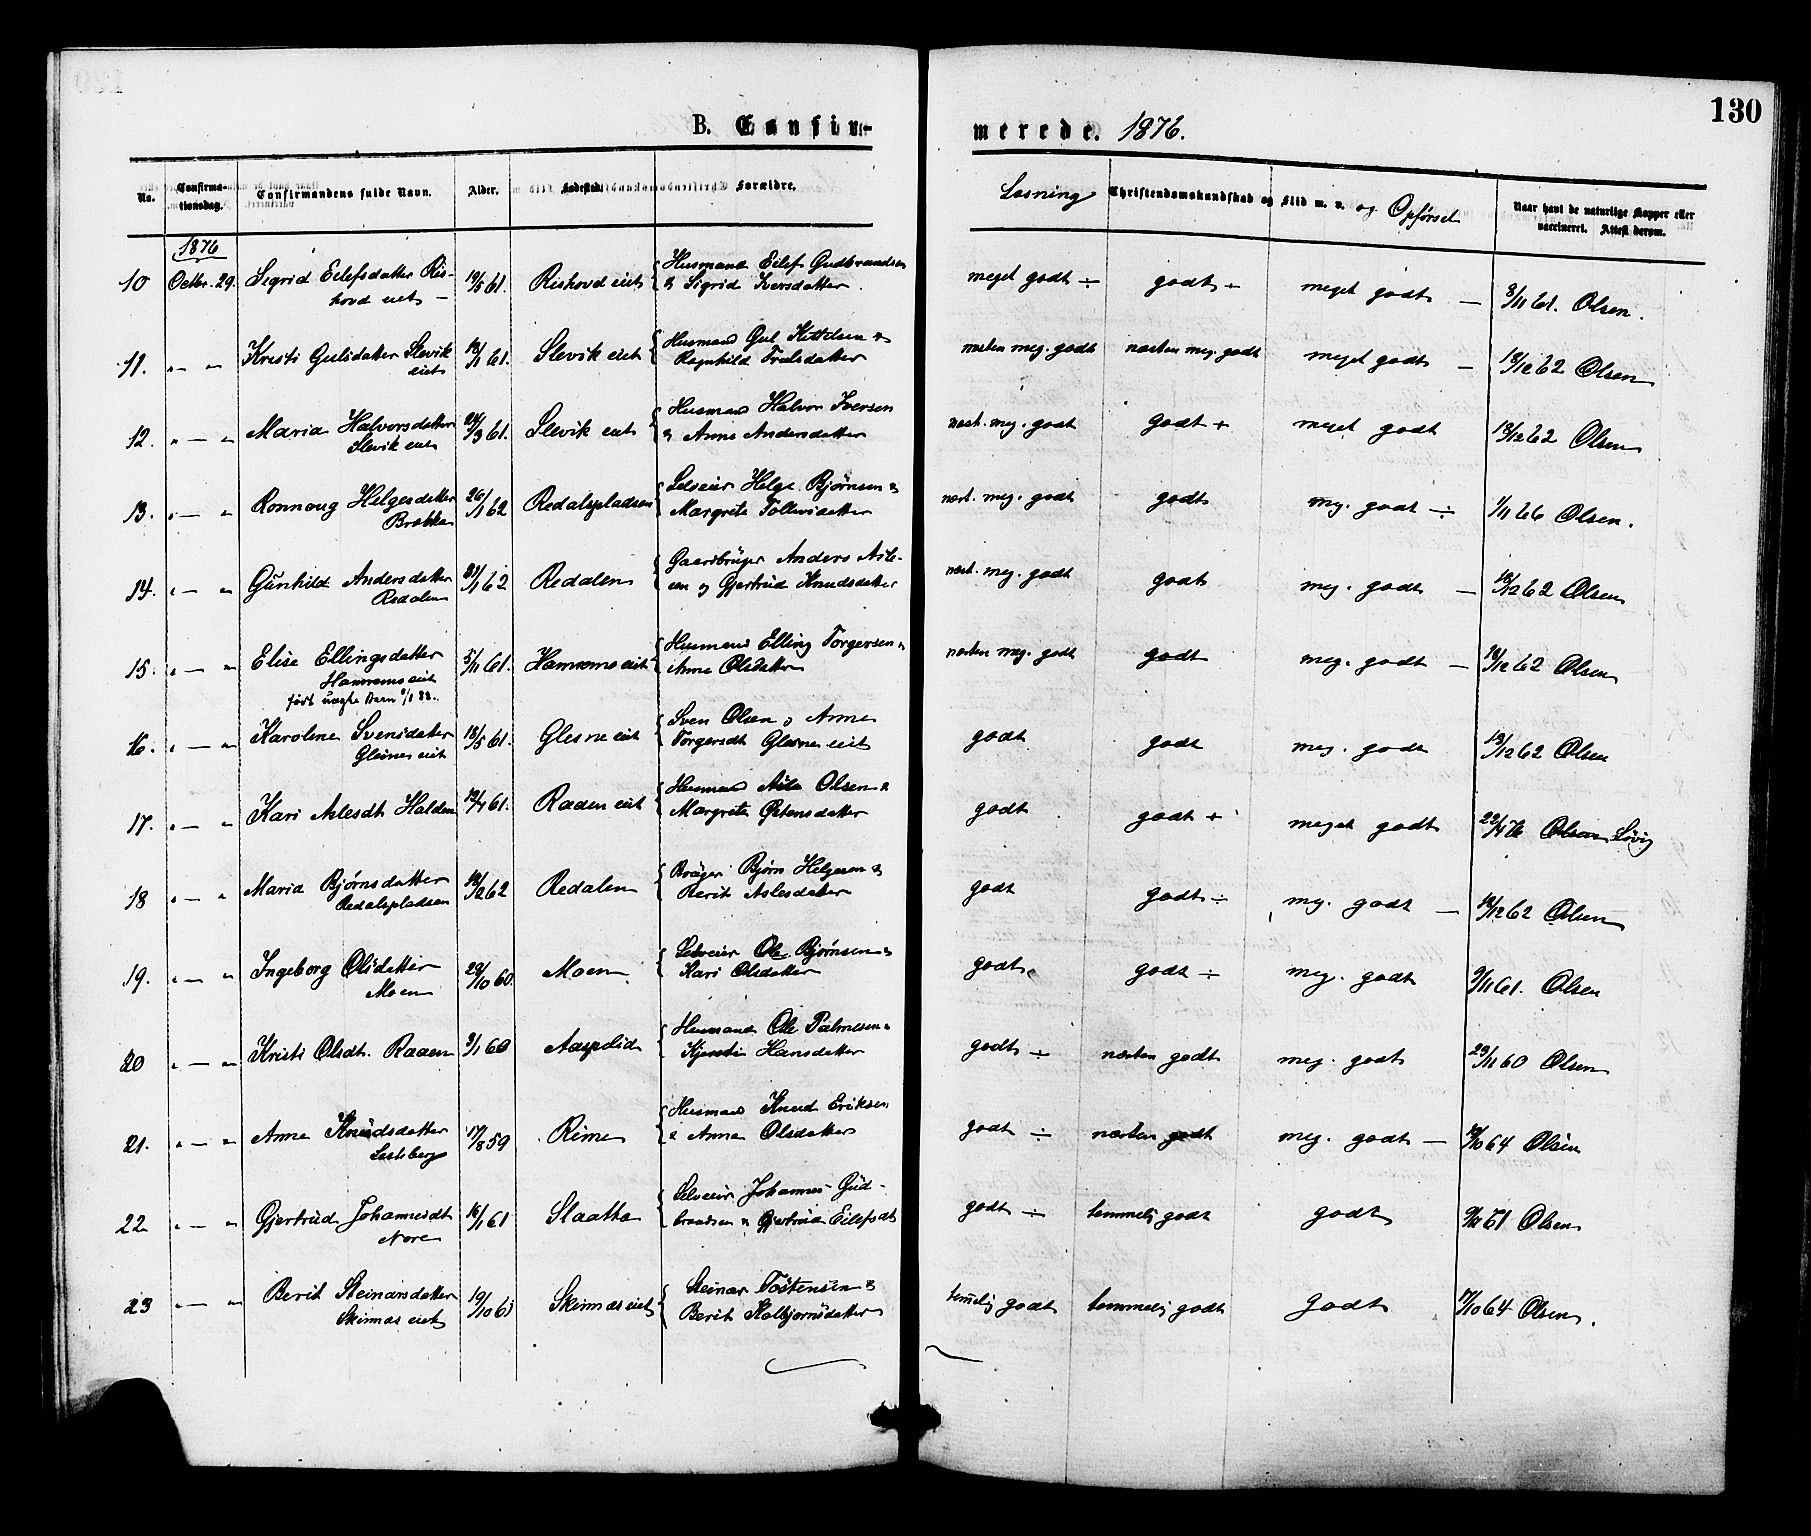 130
B. Confirmerede. 1876.
No. Confirmationsdag. Confirmandens fulde Navn. Alder. Fødested. Forældre. Læsning Christendomskundskab og Flid m. v. og Opførsel Naar havt de naturlige Kopper eller vaccineret. Attest derom.
1876
10 Octbr. 29. Sigrid Eilefsdatter Ris- 19/5 61. Rishovd eiet Husmand Eilef Gudbrandsen meget godt ÷ godt ÷ meget godt — 3/11 61. Olsen.
hovd eiet — & Sigrid Iversdatter.
11. " — " Kristi Gulsdatter Slevik 13/1 61. Slevik eiet Husmand Gul Kittelsen & næsten meg. godt næsten meg. godt meget godt — 18/12 62 Olsen
eiet Ragnhild Trulsdatter
12. " — " Maria Halvorsdatter 24/3 61. Slevik eiet Husmand Halvor Iversen næst. meg. godt godt + meget godt 18/12 62 Olsen
Slevik eiet & Anne Andersdatter
13. " — " Ronnoug Helgesdatter 26/1 62 Redalspladsen Selveier Helge Bjørnsen & næst. meg. godt godt meg. godt ÷ 1/11 66 Olsen.
Brøtka Margrete Tollevsdatter
14. " — " Gunhild Andersdatter 31/1 62 Redalen Gaardbruger Anders Asle- næst. meg. godt godt meg. godt — 18/12 62 Olsen
Redalen sen & Gjertrud Knudsdatter
15. " — " Elise Ellingsdatter 5/11 61. Hamremo eiet Husmand Elling Torgersen & næsten meg. godt godt meg. godt — 18/12 62 Olsen
Hamremo eiet Anne Olsdatter
født uægte Barn
16. " — " Karoline Svensdatter 18/5 61. Glesne eiet Sven Olsen & Anne godt godt meg. godt 12/12 62 Olsen
Glesne eiet Torgersdt Glesne eiet
17. " — " Kari Aslesdt Halden 19/4 61. Raaen eiet Husmand Asle Olsen & godt godt + meget godt 22/4 76 Olsen Løvig
Margrete Østensdatter
18 " — " Maria Bjørnsdatter 18/2 62 Redalen Bruger Bjørn Helgesen & godt godt ÷ meg. godt — 18/12 62 Olsen
Redalspladsen Berit Aslesdatter
19. " — " Ingeborg Olsdatter 29/10 60. Moen Selveier Ole Bjørnsen & godt godt ÷ meg. godt 9/11 61. Olsen
Moen Kari Olsdatter
20 " — " Kristi Olsdt. Raaen 9/1 60 Aasplid Husmand Ole Palmesen & godt ÷ næsten godt meg. godt 23/11 60 Olsen
Kjersti Hansdatter
21. " — " Anne Knudsdatter 17/8 59 Rime Husmand Knud Eriksen godt ÷ næsten godt meg. godt — 10/10 64 Olsen
Lesteberg & Anne Olsdatter
22 " — " Gjertrud Johannesdt 16/1 61 Slaatta Selveier Johannes Gud- godt ÷ temmelig godt godt 9/11 61 Olsen
Nore brandsen & Gjertrud Eilefsdt
23 " — " Berit Steinarsdatter 19/10 61 Skinnæs eiet Steinar Tostensen & temelig godt temmelig godt godt 17/10 64 Olsen.
Skinnæs eiet Berit Kolbjørnsdatter